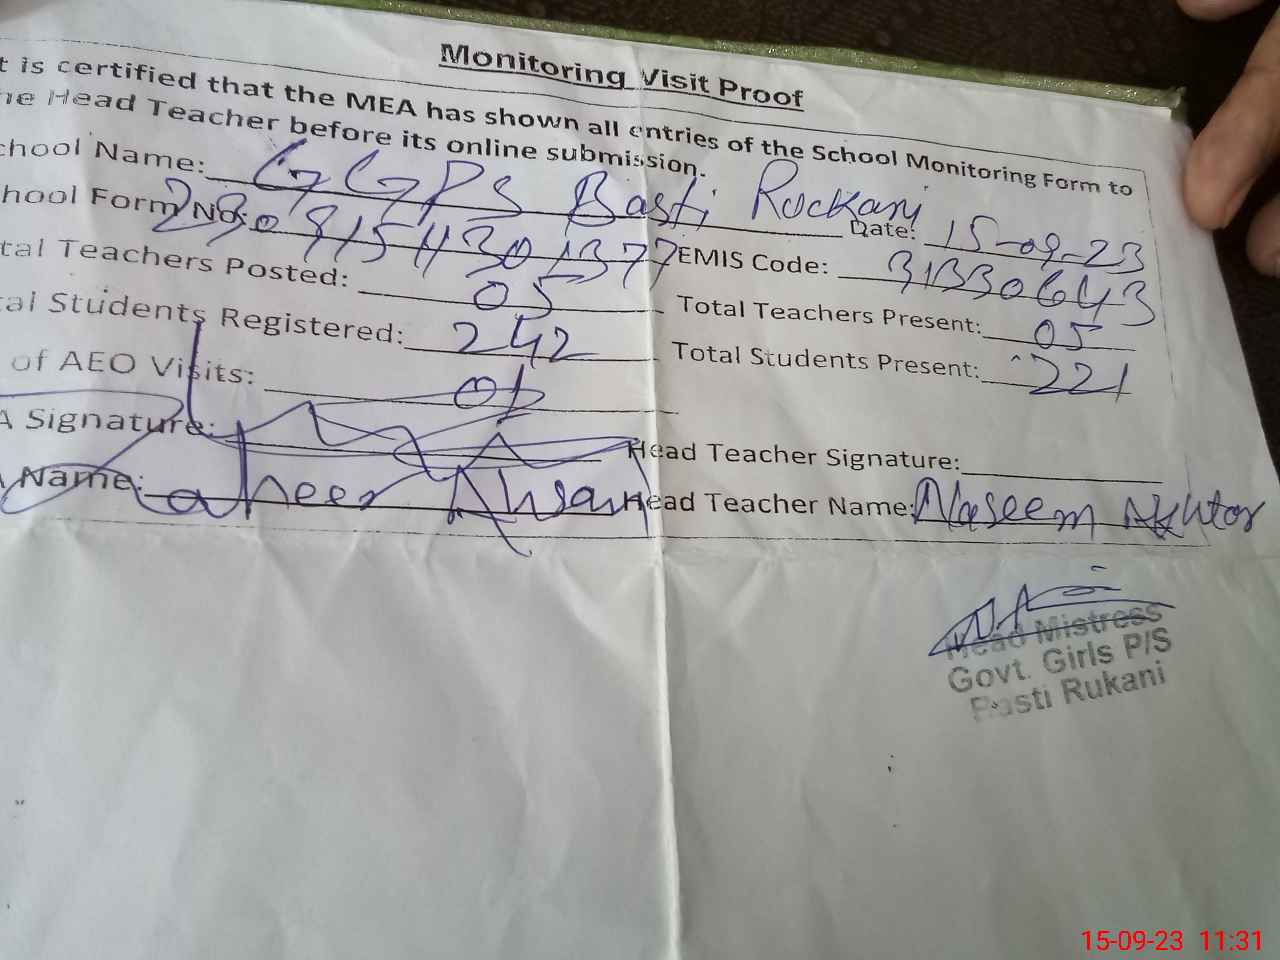 Monitoring Visit Proof
t is certified that the MEA has shown all entries of the School Monitoring Form to
he Head Teacher before its online submission.
chool Name: GGPS Basti Rockani Date: 15-09-23
hool Form No: EMIS Code: 31330643
tal Teachers Posted: 05 Total Teachers Present: 05
tal Students Registered: 242 Total Students Present: 221
of AEO Visits:
A Signature: Head Teacher Signature:
Name: Head Teacher Name: Naseem Akhtar
Head Mistress
Govt. Girls P/S
Basti Rukani
15-09-23 11:31